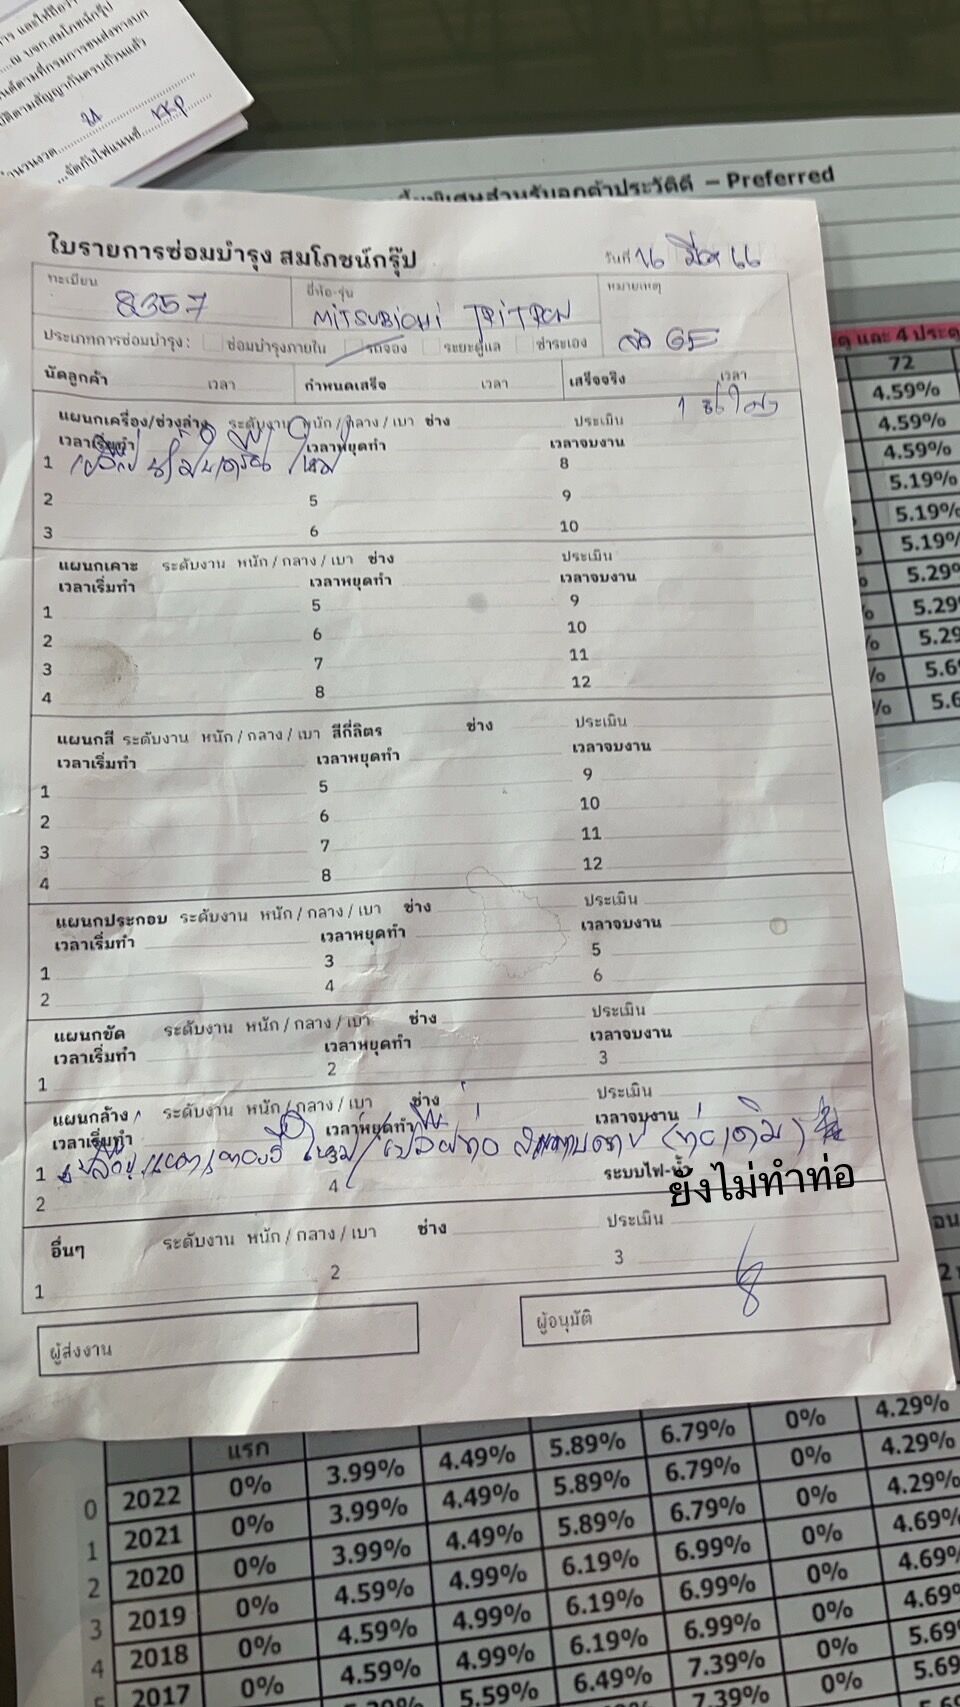 การ และให้ถือว่า
ณ บจก.สมโภชน์กรุ๊ป
ยนต์ตามที่กรมการขนส่งทางบก
บัติตามสัญญากันครบถ้วนแล้ว
จำนวนงวด 84
...จัดกับไฟแนนซ์ KKP
พิเศษสำหรับลูกค้าประวัติดี – Preferred
ใบรายการซ่อมบำรุง สมโภชน์กรุ๊ป
วันที่ 26 มีค 66
ทะเบียน 8357
ยี่ห้อ-รุ่น MITSUBICHI TRITRON
หมายเหตุ
ประเภทการซ่อมบำรุง: ซ่อมบำรุงภายใน รถจอง ระยะดูแล ชำระเอง
นัดลูกค้า เวลา กำหนดเสร็จ เวลา เสร็จจริง เวลา
แผนกเครื่อง/ช่วงล่าง ระดับงาน หนัก / กลาง / เบา ช่าง ประเมิน
เวลาเริ่มทำ เวลาหยุดทำ เวลาจบงาน
1 เปลี่ยนน้ำมันเครื่อง ใหม่ 8
2 5 9
3 6 10
แผนกเคาะ ระดับงาน หนัก / กลาง / เบา ช่าง ประเมิน
เวลาเริ่มทำ เวลาหยุดทำ เวลาจบงาน
1 5 9
2 6 10
3 7 11
4 8 12
แผนกสี ระดับงาน หนัก / กลาง / เบา สีกี่ลิตร ช่าง ประเมิน
เวลาเริ่มทำ เวลาหยุดทำ เวลาจบงาน
1 5 9
2 6 10
3 7 11
4 8 12
แผนกประกอบ ระดับงาน หนัก / กลาง / เบา ช่าง ประเมิน
เวลาเริ่มทำ เวลาหยุดทำ เวลาจบงาน
1 3 5
2 4 6
แผนกขัด ระดับงาน หนัก / กลาง / เบา ช่าง ประเมิน
เวลาเริ่มทำ เวลาหยุดทำ เวลาจบงาน
1 2 3
แผนกล้าง ระดับงาน หนัก / กลาง / เบา ช่าง ประเมิน
เวลาเริ่มทำ เวลาหยุดทำ เวลาจบงาน
1 ใหม่ / เปลี่ยนท่อ (ท่อเดิม) 3
2 4 ระบบไฟ-น้ำ
ยังไม่ทำท่อ
อื่นๆ ระดับงาน หนัก / กลาง / เบา ช่าง ประเมิน
1 2 3
ผู้ส่งงาน ผู้อนุมัติ
ตู และ 4 ประตู
72
4.59%
4.59%
4.59%
5.19%
5.19%
5.19%
5.29%
5.29%
5.29
5.6
5.6
แรก
0 2022 0% 3.99% 4.49% 5.89% 6.79% 0% 4.29%
1 2021 0% 3.99% 4.49% 5.89% 6.79% 0% 4.29%
2 2020 0% 3.99% 4.49% 5.89% 6.79% 0% 4.29%
3 2019 0% 4.59% 4.99% 6.19% 6.99% 0% 4.69%
4 2018 0% 4.59% 4.99% 6.19% 6.99% 0% 4.69%
2017 0% 4.59% 4.99% 6.19% 6.99% 0% 4.69
0% 5.59% 6.49% 7.39% 0% 5.69
7.39% 0% 5.69